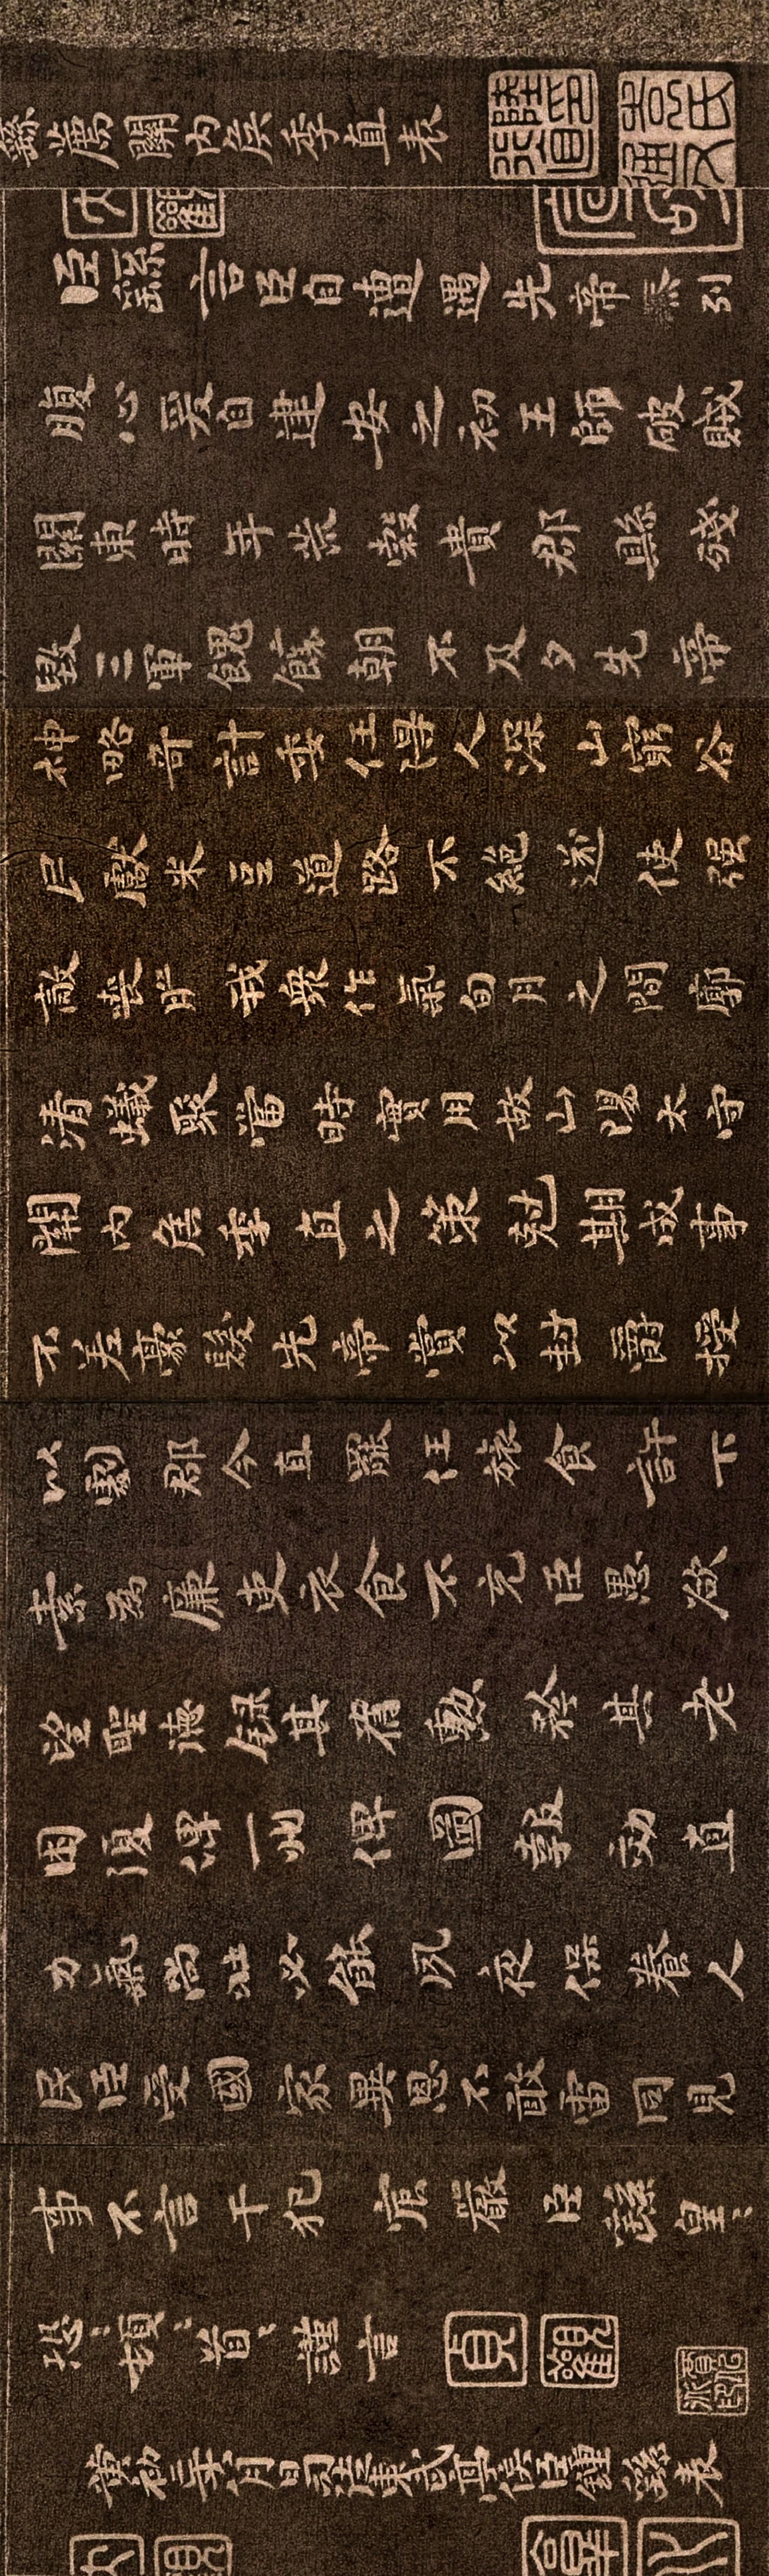 繇薦關內侯季直表
臣繇言臣自遭遇先帝忝列
腹心爰自建安之初王師破賊
關東時年荒穀貴郡縣殘
毀三軍餽饟朝不及夕先帝
神略奇計委任得人深山窮谷
民獻米豆道路不絕遂使強
敵喪膽我眾作氣旬月之間廓
清蟻聚當時實用故山陽太守
關內侯季直之策剋期成事
不差豪髮先帝賞以封爵授
以劇郡今直罷任旅食許下
素為廉吏衣食不充臣愚欲
望聖德錄其舊勳矜其老
困復俾一州俾圖報效直
力氣尚壯必能夙夜保養人
民臣受國家異恩不敢雷同見
事不言干犯宸嚴臣繇皇〻
恐〻頓〻首〻謹言
黃初二年八月日司徒東武亭侯臣鍾繇表